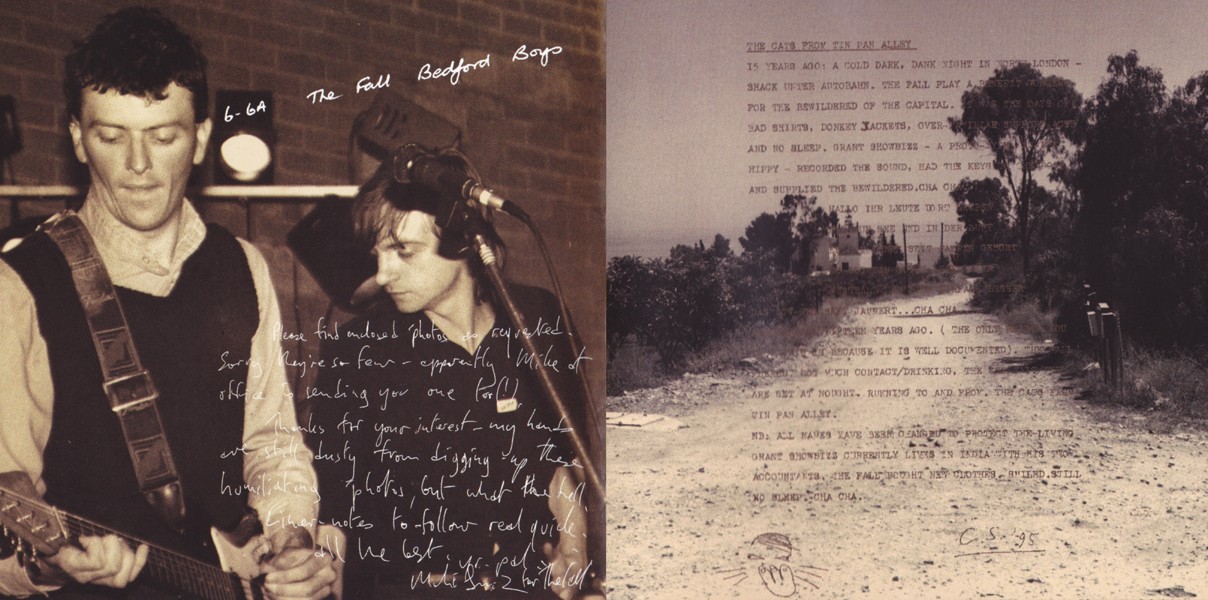 6-6A
The Fall Bedford Boys
Please find enclosed photos as requested.
Sorry they're so few - apparently Mike at
office is sending you one too(!)
Thanks for your interest - my hands
are still dusty from digging up these
humiliating photos, but what the hell.
Liner-notes to-follow real quick.
All the best, yr. pal
THE CATS FROM TIN PAN ALLEY
15 YEARS AGO: A COLD DARK, DANK NIGHT IN NORTH LONDON -
SHACK UNTER AUTOBAHN. THE FALL PLAY A
FOR THE BEWILDERED OF THE CAPITAL. THE DAYS OF
BAD SHIRTS, DONKEY JACKETS, OVER-
AND NO SLEEP. GRANT SHOWBIZZ - A PROTO-
HIPPY - RECORDED THE SOUND, HAD THE KEYS
AND SUPPLIED THE BEWILDERED.CHA CHA
HALLO IHR LEUTE DORT
UND IN DER
GEHORT
...CHA CHA
FIFTEEN YEARS AGO. ( THE ONLY
BECAUSE IT IS WELL DOCUMENTED).
NOT MUCH CONTACT/DRINKING. THE
ARE SET AT NOUGHT. RUNNING TO AND FROM. THE CATS FROM
TIN PAN ALLEY.
NB: ALL NAMES HAVE BEEN CHANGED TO PROTECT THE LIVING
GRANT SHOWBIZZ CURRENTLY LIVES IN INDIA WITH HIS TWO
ACCOUNTANTS. THE FALL BOUGHT NEW CLOTHES, STILL
NO SLEEP.CHA CHA.
C.S. '95